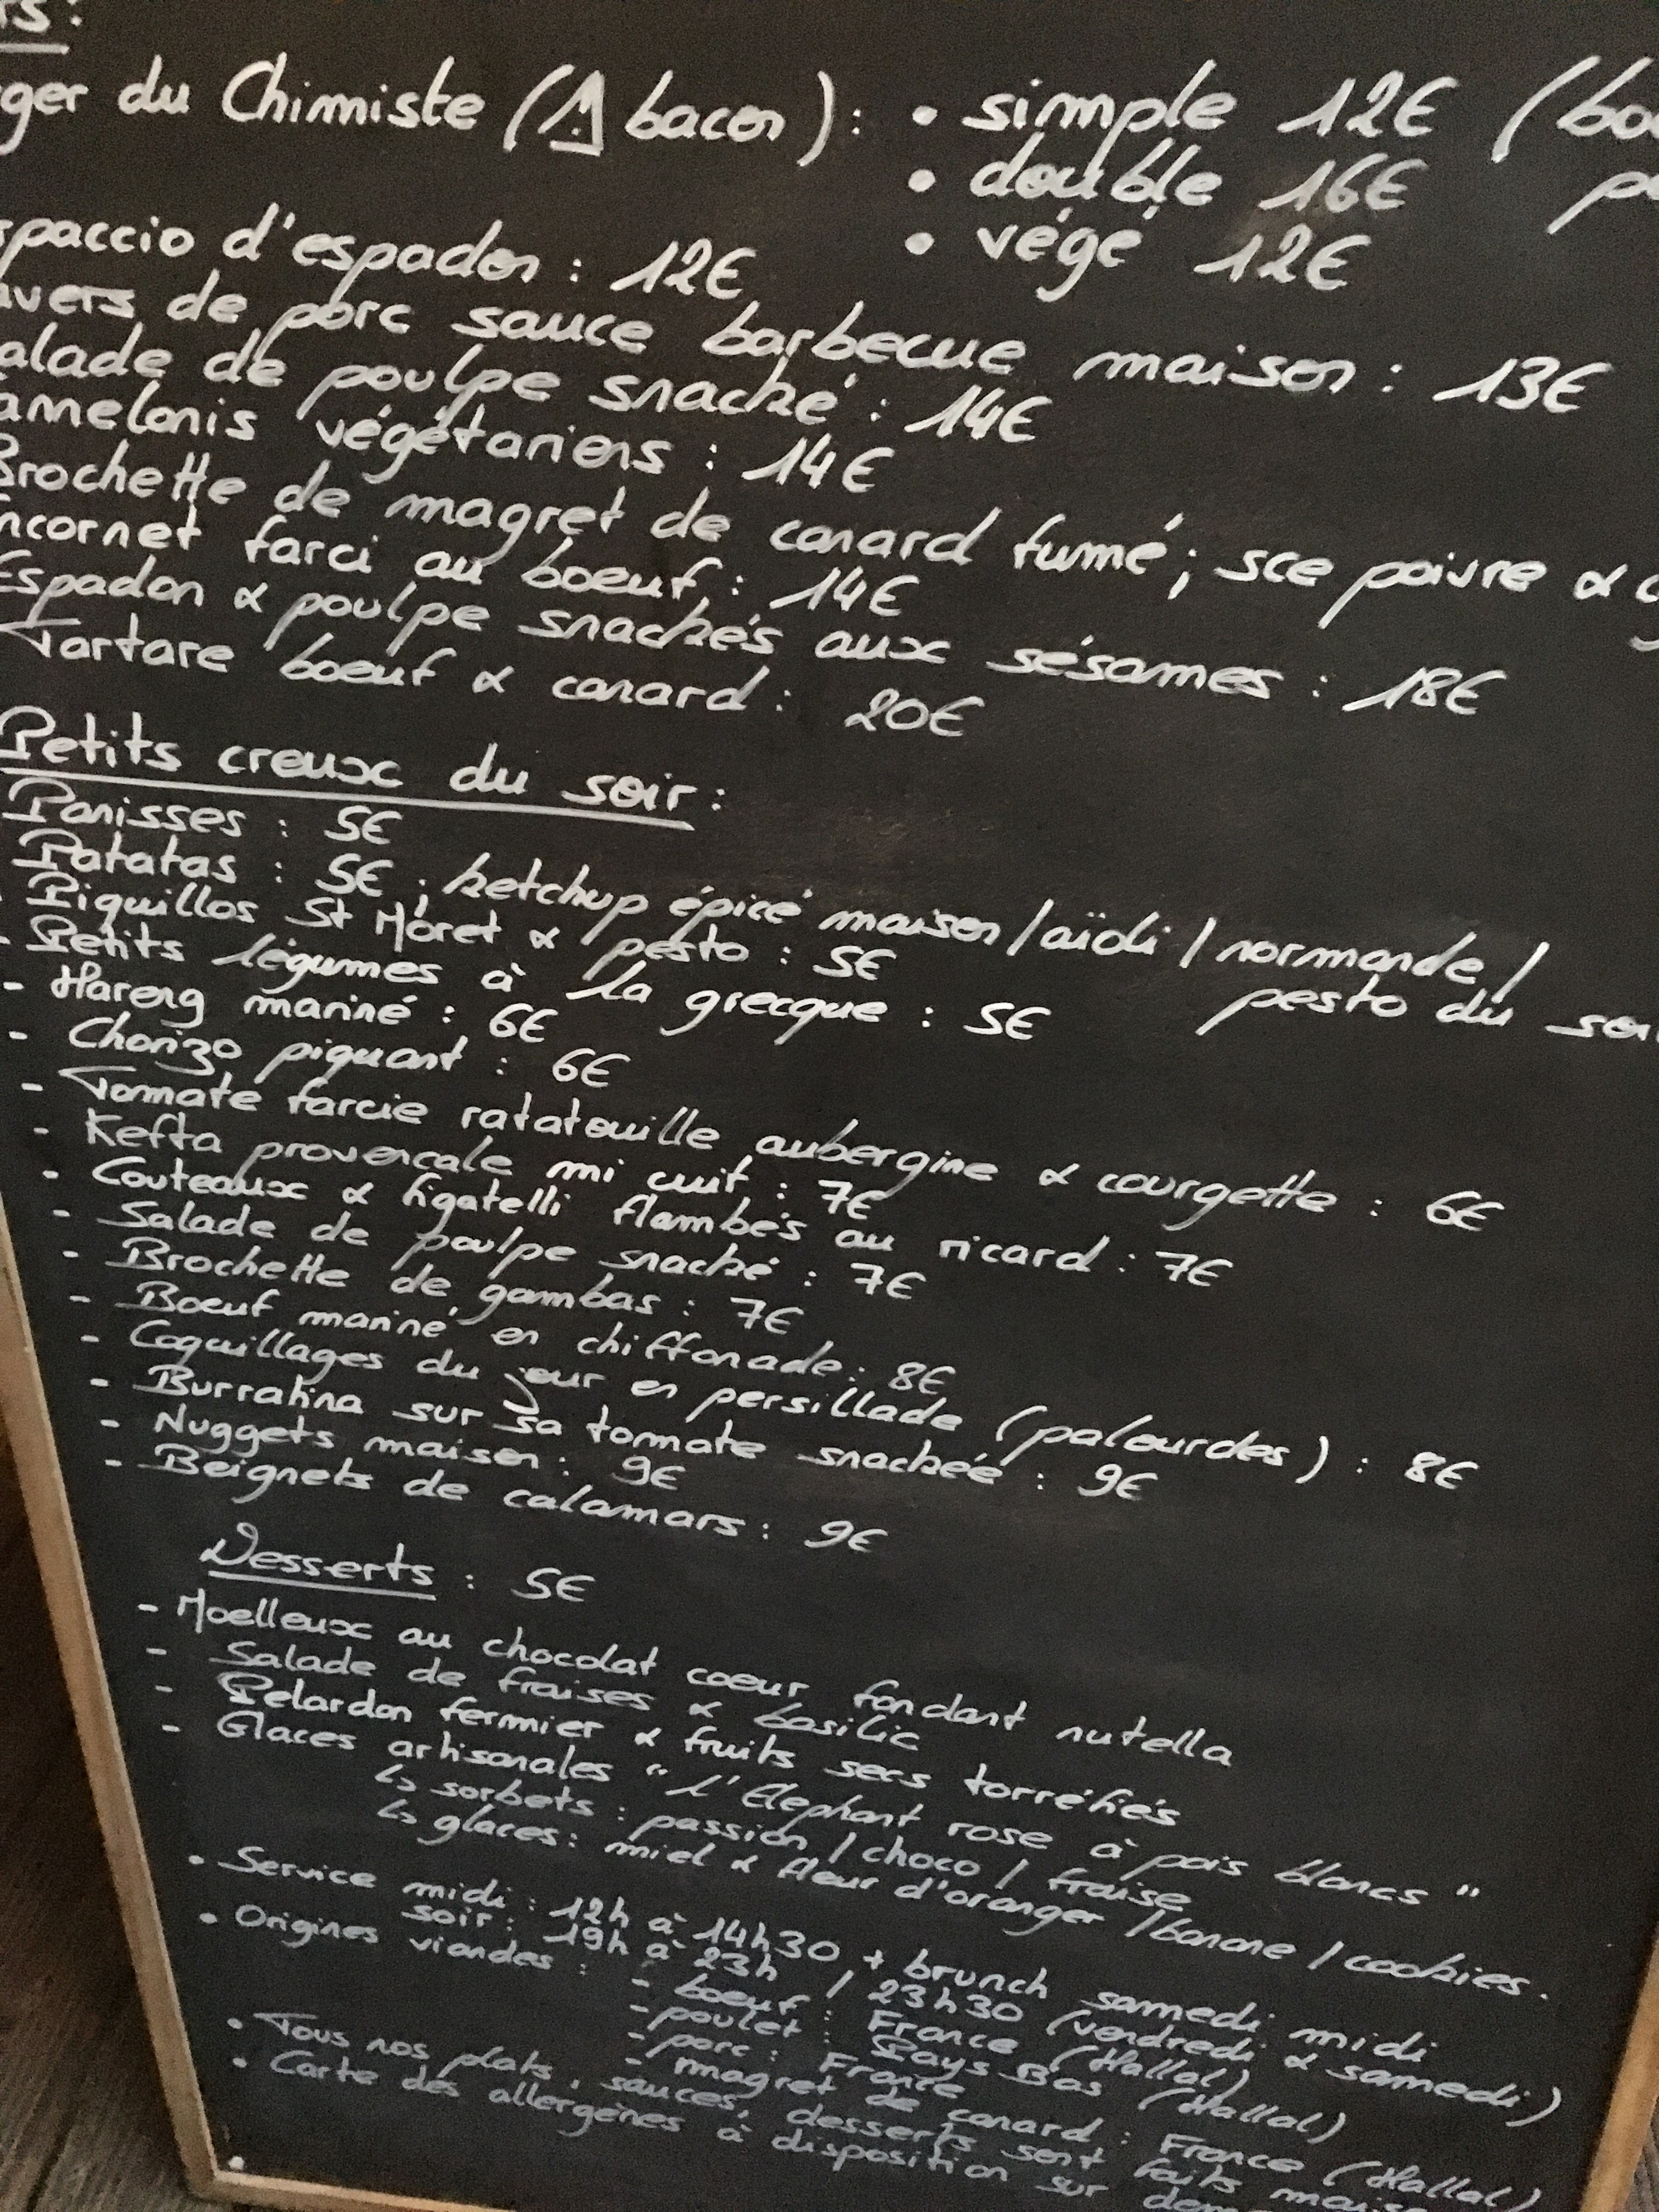 ts:
ger du Chimiste (⚠ bacon): • simple 12€ (
• double 16€
• végé 12€
spaccio d'espadon : 12€
avers de porc sauce barbecue maison : 13€
alade de poulpe snacké : 14€
amelonis végétariens : 14€
Brochette de magret de canard fumé; sce poivre &
ncornet farci au boeuf : 14€
Espadon & poulpe snackés aux sésames : 18€
Tartare boeuf & canard : 20€
Petits creux du soir :
Panisses : 5€
Patatas : 5€ ; ketchup épicé maison / aïoli / normande /
pesto du soi
Piquillos St Môret & pesto : 5€
- Petits légumes à la grecque : 5€
- Hareng mariné : 6€
- Chorizo piquant : 6€
- Tomate farcie ratatouille aubergine & courgette : 6€
- Kefta provençale mi cuit : 7€
- Couteaux & figatelli flambés au ricard : 7€
- Salade de poulpe snacké : 7€
- Brochette de gambas : 7€
- Boeuf mariné en chiffonade : 8€
- Coquillages du jour en persillade (palourdes) : 8€
- Burratina sur sa tomate snackée : 9€
- Nuggets maison : 9€
- Beignets de calamars : 9€
Desserts : 5€
- Moelleux au chocolat coeur fondant nutella
- Salade de fraises & basilic
- Pelardon fermier & fruits secs torréfiés
- Glaces artisanales "L'Elephant rose à pois blancs"
↳ sorbets : passion / choco / fraise
↳ glaces : miel & fleur d'oranger / banane / cookies.
• Service midi : 12h à 14h30 + brunch samedi midi
soir : 19h à 23h / 23h30 (vendredi & samedi)
• Origines viandes : - boeuf : France (Hallal)
- poulet : Pays Bas (Hallal)
- porc : France
- magret de canard : France (Hallal)
• Tous nos plats, sauces, desserts sont faits mais
• Carte des allergènes à disposition sur dem